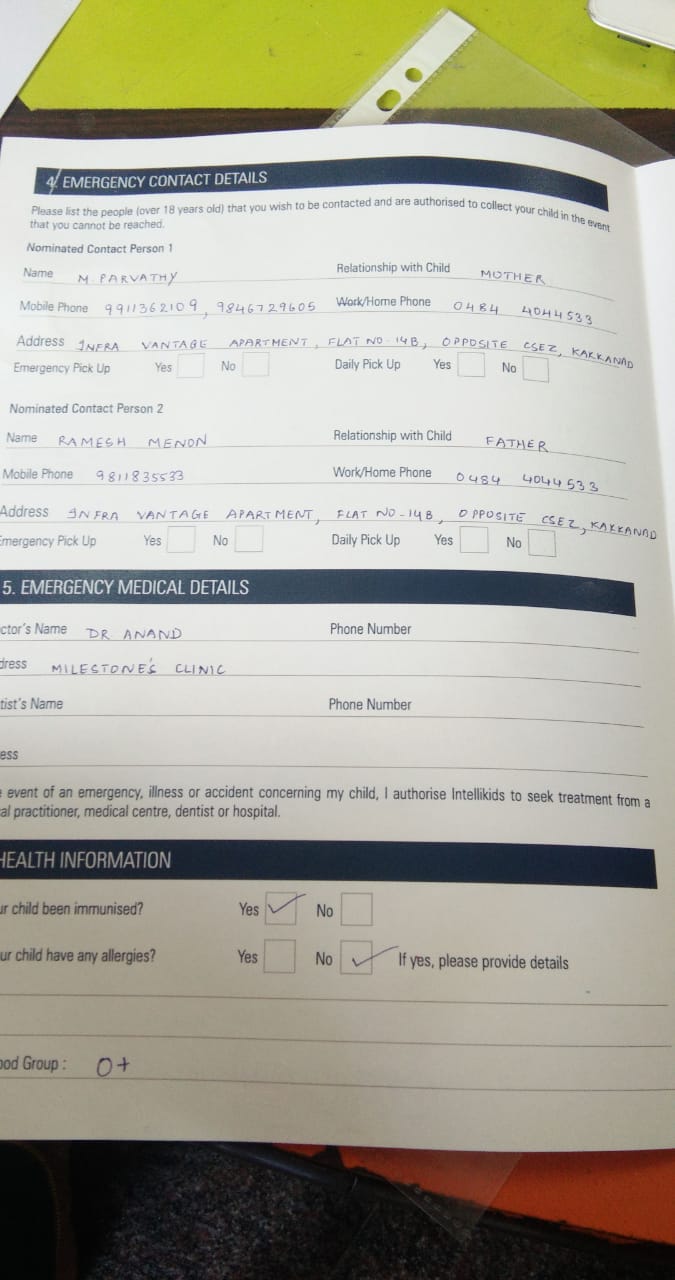 4. EMERGENCY CONTACT DETAILS
Please list the people (over 18 years old) that you wish to be contacted and are authorised to collect your child in the event
that you cannot be reached.
Nominated Contact Person 1
Name M. PARVATHY Relationship with Child MOTHER
Mobile Phone 9911362109, 9846729605 Work/Home Phone 0484 4044533
Address INFRA VANTAGE APARTMENT, FLAT NO-14B, OPPOSITE CSEZ, KAKKANAD
Emergency Pick Up Yes No Daily Pick Up Yes No
Nominated Contact Person 2
Name RAMESH MENON Relationship with Child FATHER
Mobile Phone 9811835533 Work/Home Phone 0484 4044533
Address INFRA VANTAGE APARTMENT, FLAT NO-14B, OPPOSITE CSEZ, KAKKANAD
Emergency Pick Up Yes No Daily Pick Up Yes No
5. EMERGENCY MEDICAL DETAILS
ctor's Name DR ANAND Phone Number
dress MILESTONE'S CLINIC
tist's Name Phone Number
ess
e event of an emergency, illness or accident concerning my child, I authorise Intellikids to seek treatment from a
al practitioner, medical centre, dentist or hospital.
HEALTH INFORMATION
ur child been immunised? Yes ✓ No
ur child have any allergies? Yes No ✓ If yes, please provide details
ood Group : O+